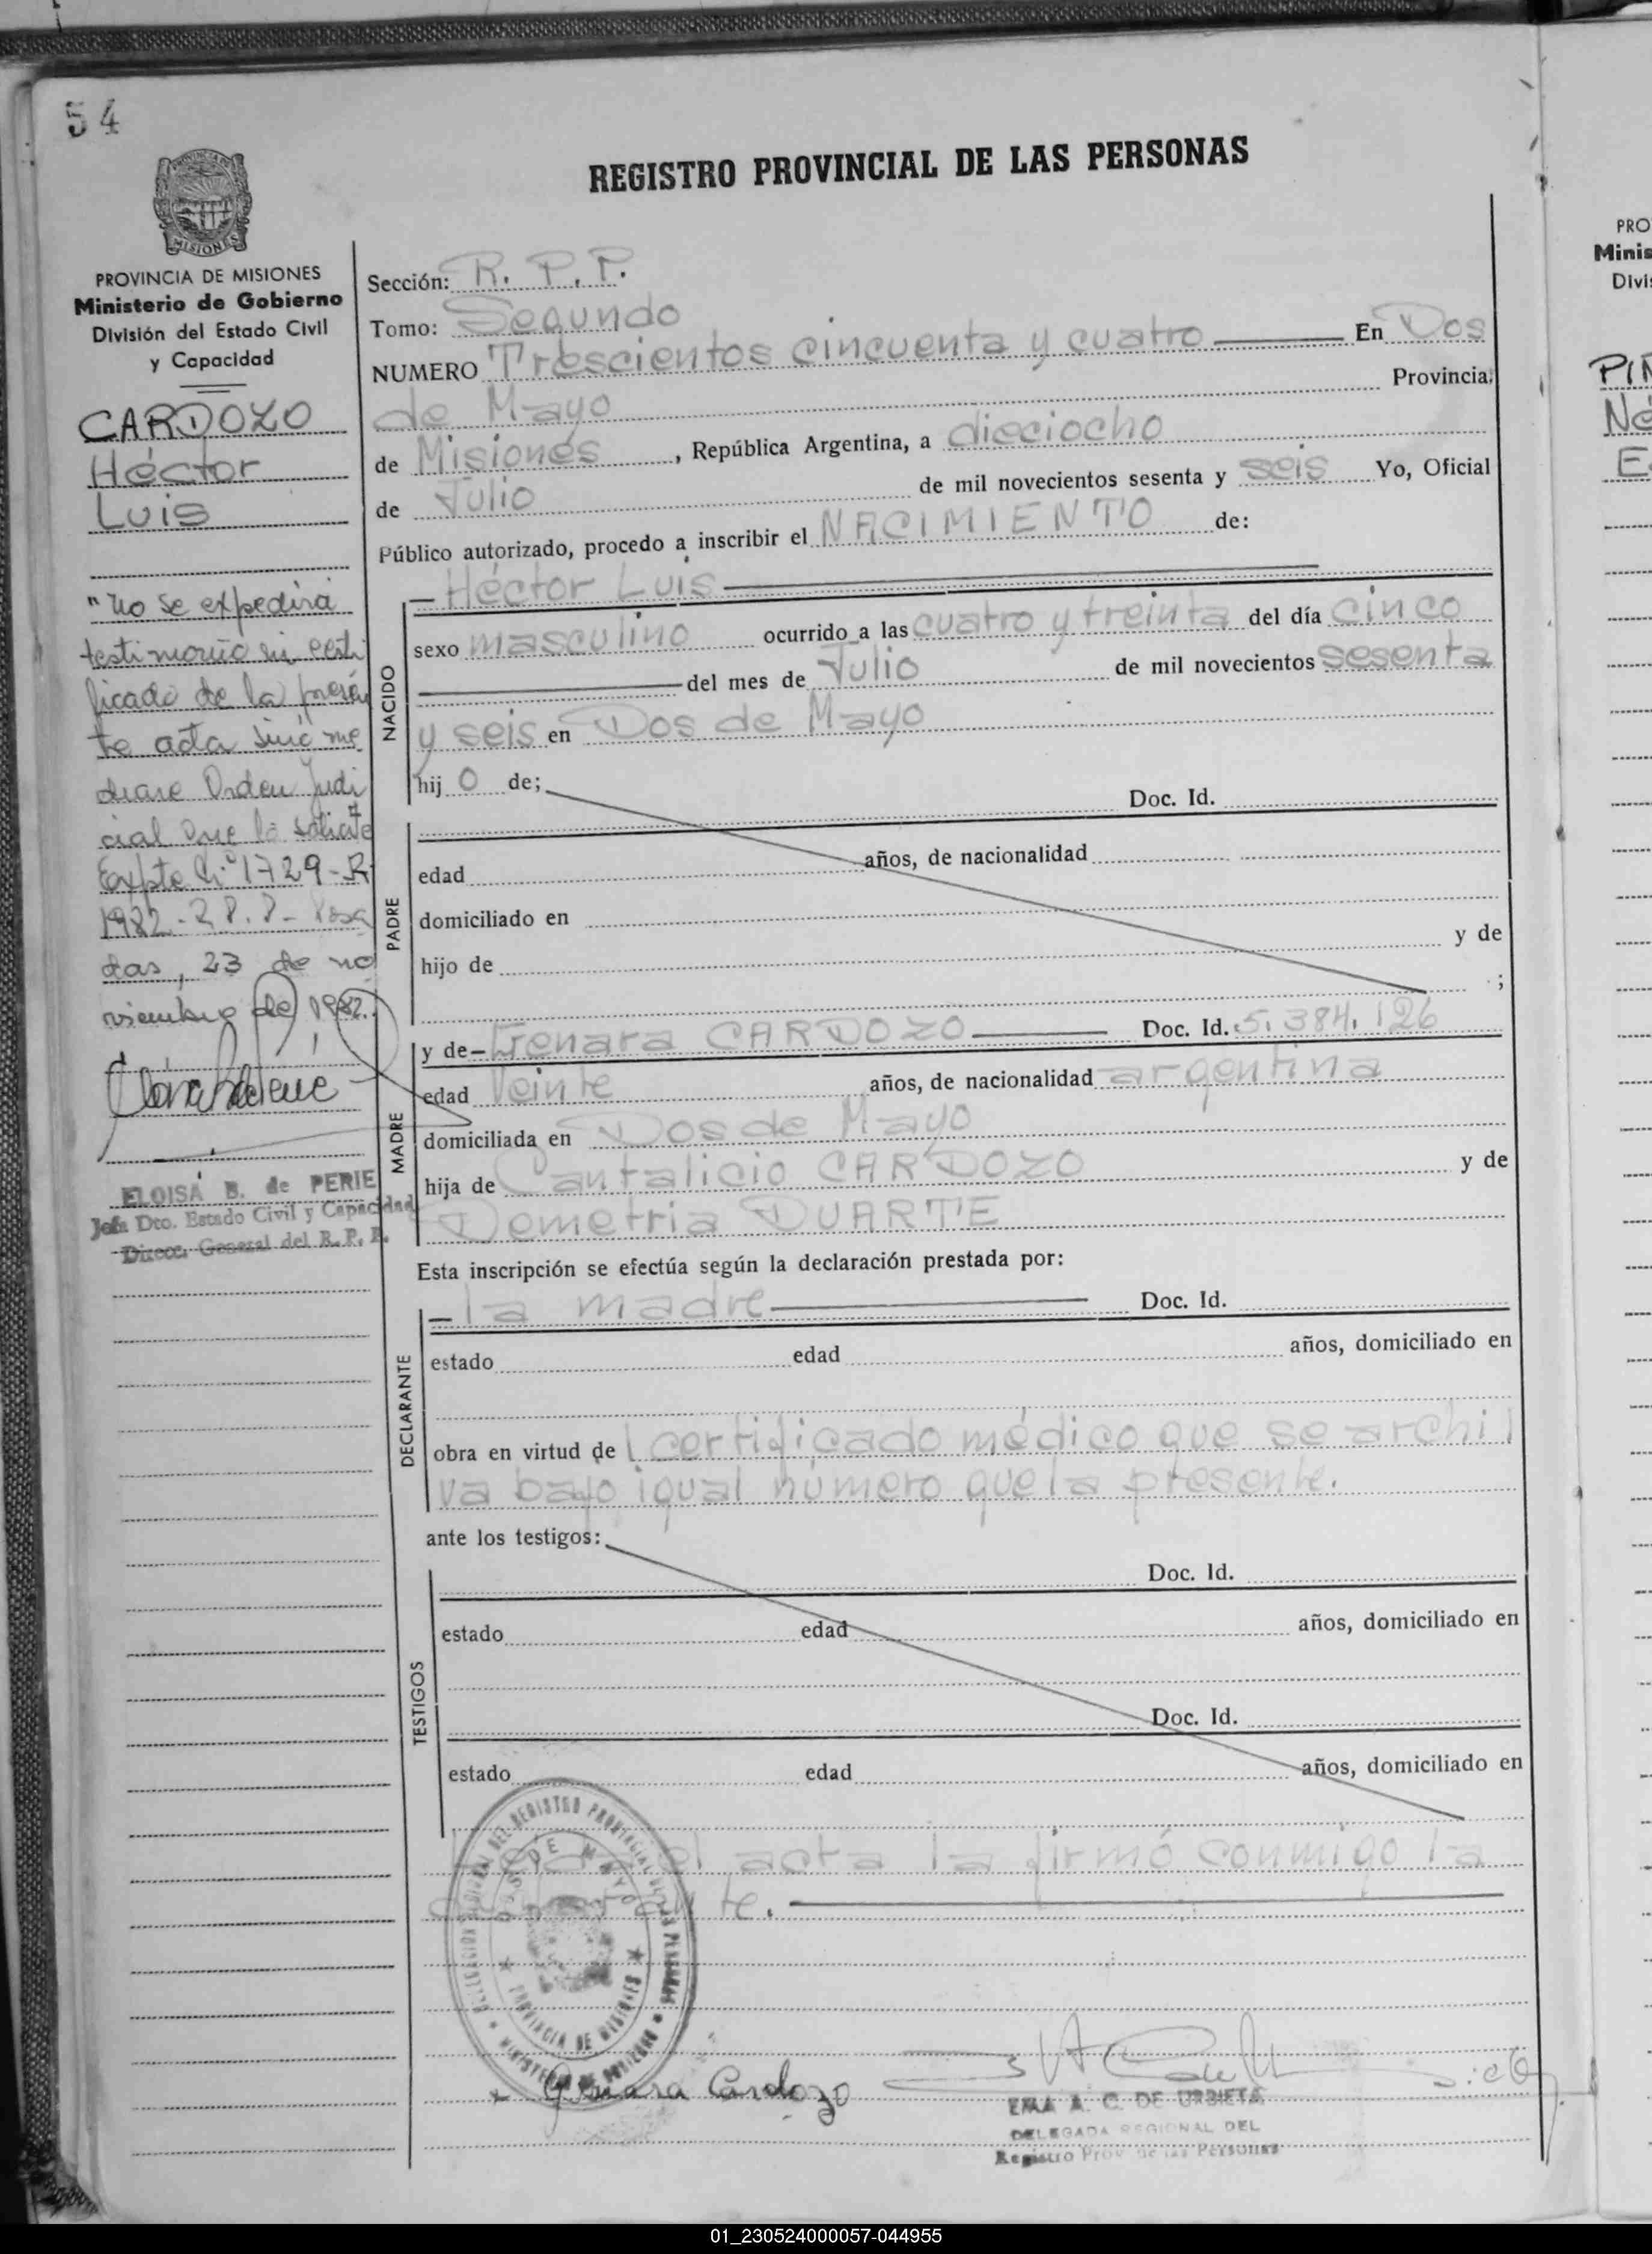 54
REGISTRO PROVINCIAL DE LAS PERSONAS
MISIONES
PROVINCIA DE MISIONES
Ministerio de Gobierno
División del Estado Civil
y Capacidad
CARDOZO
Héctor
Luis
"No se expedirá
testimonio ni certi
ficado de la presen
te acta sino me
diare Orden Judi
cial que lo solicite
Expte Nº 1729-R-
1982
das, 23 de no
viembre de 1982.
ELOISA B. de PERIE
Jefa Dto. Estado Civil y Capacidad
Direcc. General del R. P. P.
Sección: R. P. P.
Tomo: Segundo
NUMERO Trescientos cincuenta y cuatro En Dos
de Mayo Provincia
de Misiones, República Argentina, a dieciocho
de Julio de mil novecientos sesenta y seis Yo, Oficial
Público autorizado, procedo a inscribir el NACIMIENTO de:
NACIDO
- Héctor Luis
sexo masculino ocurrido a las cuatro y treinta del día cinco
del mes de Julio de mil novecientos sesenta
y seis en Dos de Mayo
hijo de;
Doc. Id.
PADRE
edad años, de nacionalidad
domiciliado en
hijo de y de
;
MADRE
y de - Genara CARDOZO Doc. Id. 5.384.126
edad veinte años, de nacionalidad argentina
domiciliada en Dos de Mayo
hija de Cantalicio CARDOZO y de
Demetria DUARTE
Esta inscripción se efectúa según la declaración prestada por:
DECLARANTE
- la madre Doc. Id.
estado edad años, domiciliado en
obra en virtud del certificado médico que se archi
va bajo igual número que la presente.
ante los testigos:
TESTIGOS
Doc. Id.
estado edad años, domiciliado en
Doc. Id.
estado edad años, domiciliado en
acta la firmó conmigo la
DOS DE MAYO
PROVINCIA DE MISIONES
Genara Cardozo
EMA A. C. DE URBIETA
DELEGADA REGIONAL DEL
Registro Prov. de las Personas
PRO
Minis
Divi
01_230524000057-044955